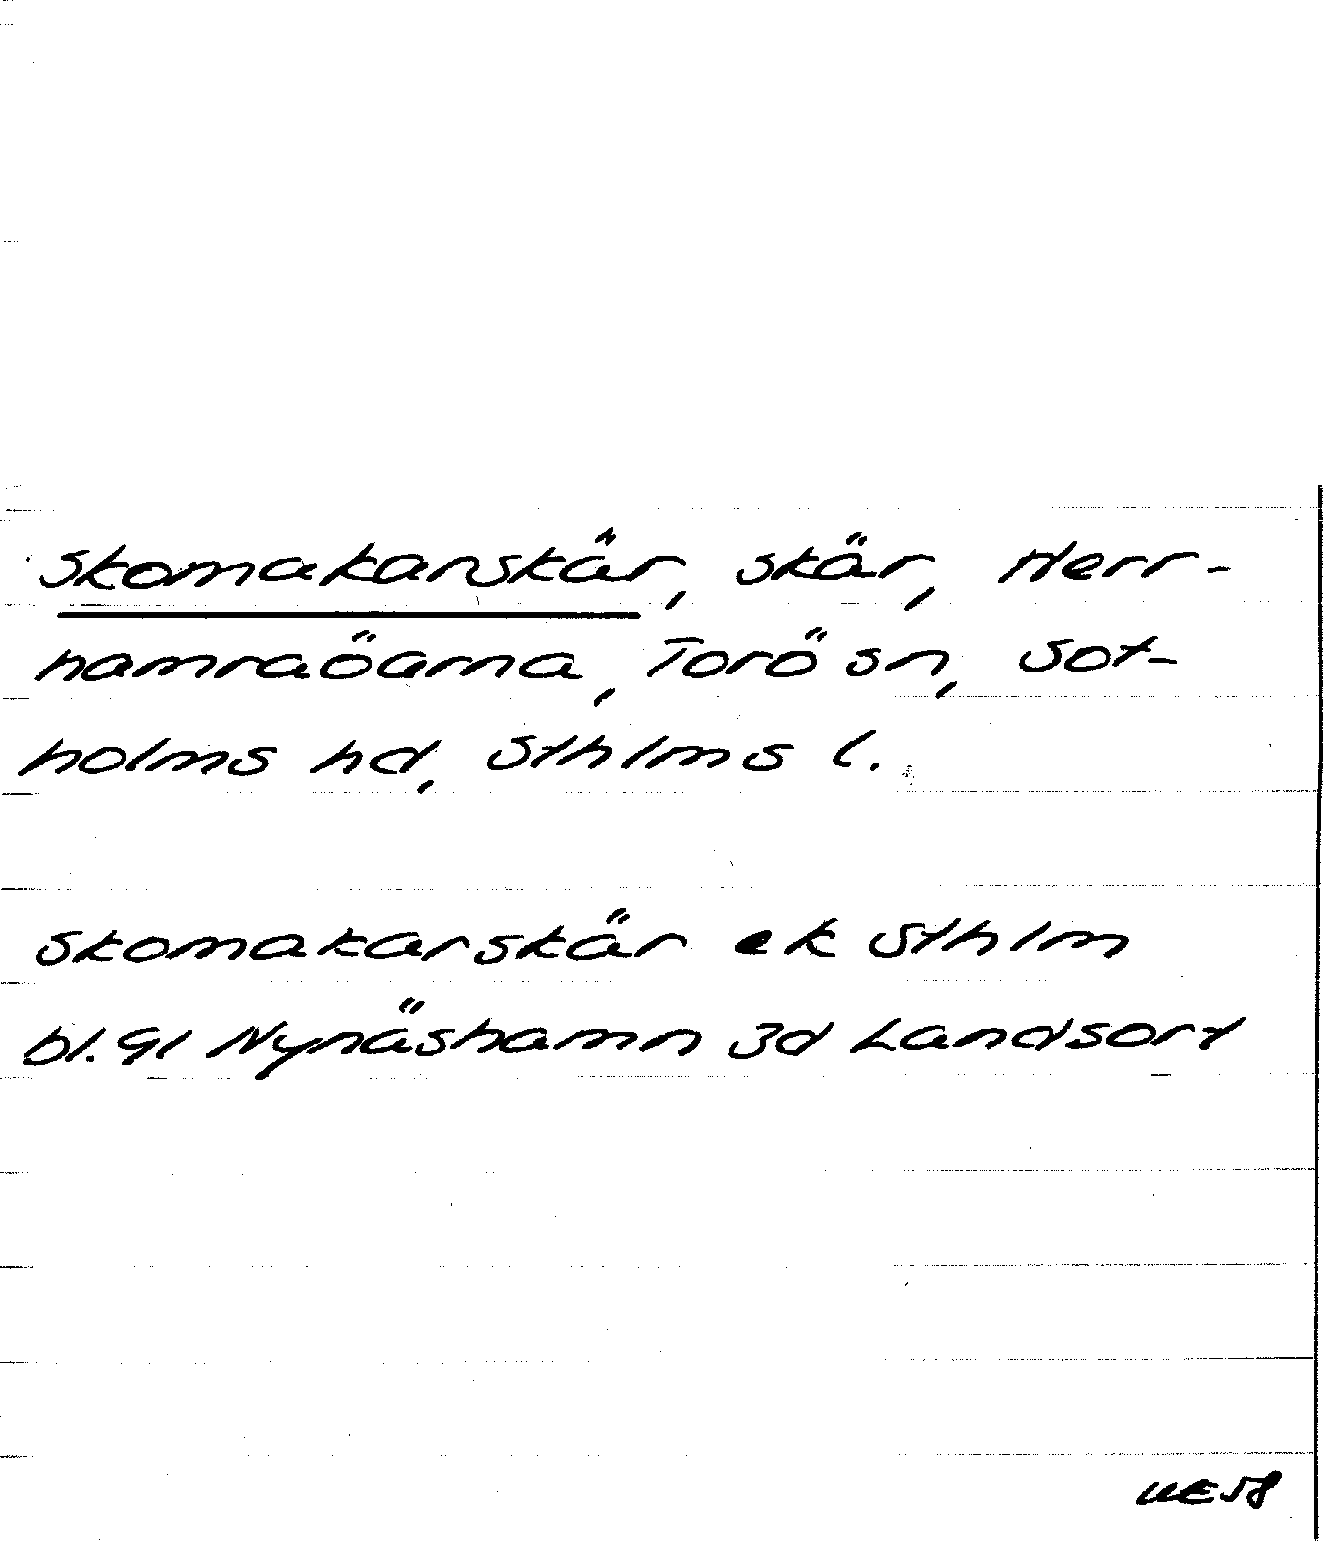 Skomakarskär, skär, Herr-
hamraöarna, Torö sn, Sot-
holms hd, Sthlms l.
Skomakarskär ek Sthlm
bl. 91 Nynäshamn 3d Landsort